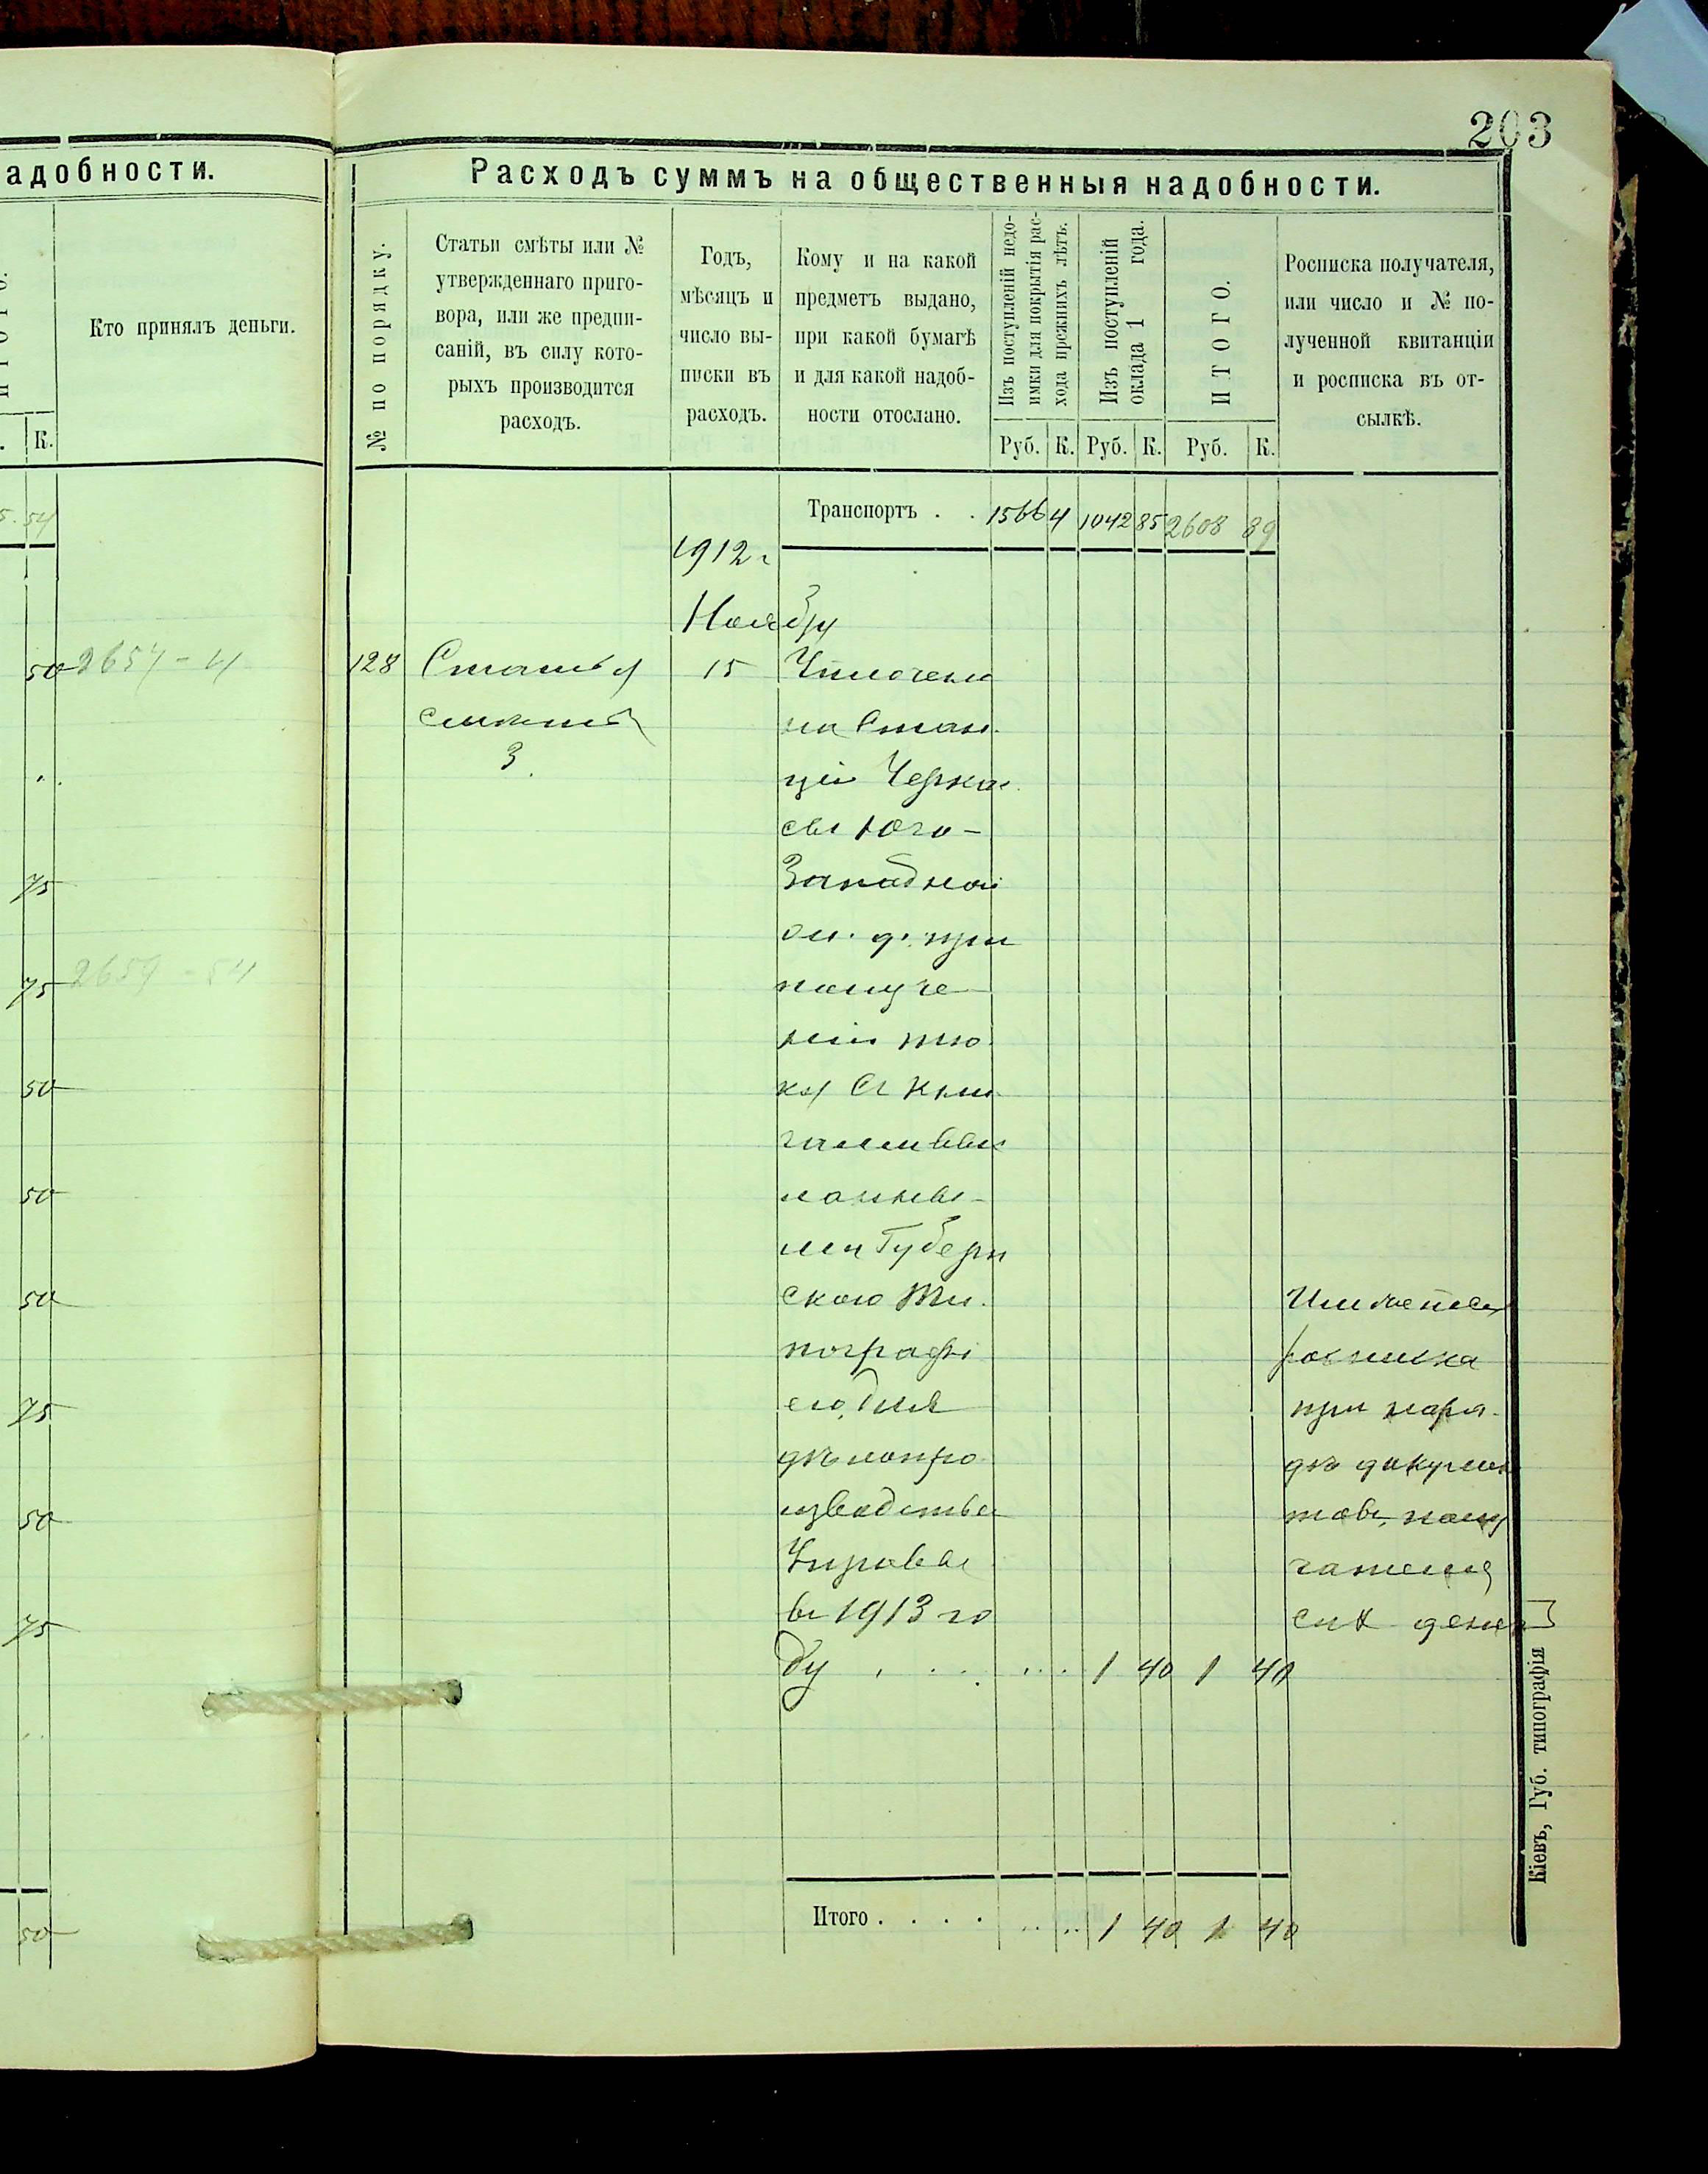 203
адобности.
К.
Кто принялъ деньги.
54
50 2657 - 4
75
75 2659 - 54
50
50
50
75
50
75
50
Расходъ суммъ на общественныя надобности.
№ по порядку.
Статьи смѣты или №
утвержденнаго приго-
вора, или же предпи-
саній, въ силу кото-
рыхъ производится
расходъ.
Годъ,
мѣсяцъ и
число вы-
писки въ
расходъ.
Кому и на какой
предметъ выдано,
при какой бумагѣ
и для какой надоб-
ности отослано.
Изъ поступленій недо-
имки для покрытія рас-
хода прежнихъ лѣтъ.
Изъ поступленій
оклада 1 года.
ИТОГО.
Росписка получателя,
или число и № по-
лученной квитанціи
и росписка въ от-
сылкѣ.
Руб. К. Руб. К. Руб. К.
Транспортъ . . 1566 4 1042 85 2608 89
1912 г
Ноября
128 Статья 15 Уплочено
смѣты на Стан
3 ціи Черка
сы Юго-
Западной
ж. д. при
получе
ніи тю
ка съ кни
гами
Губерн
ского Ти
пографі
ею, для
дѣлопро
изводства
Управы
въ 1913 го
ду . . . . . 1 40 1 40
Имѣется
росписка
при наря
дѣ докумен
товъ, полу
сихъ денег
Итого . . . . . . . 1 40 1 40
Кіевъ, Губ. типографія